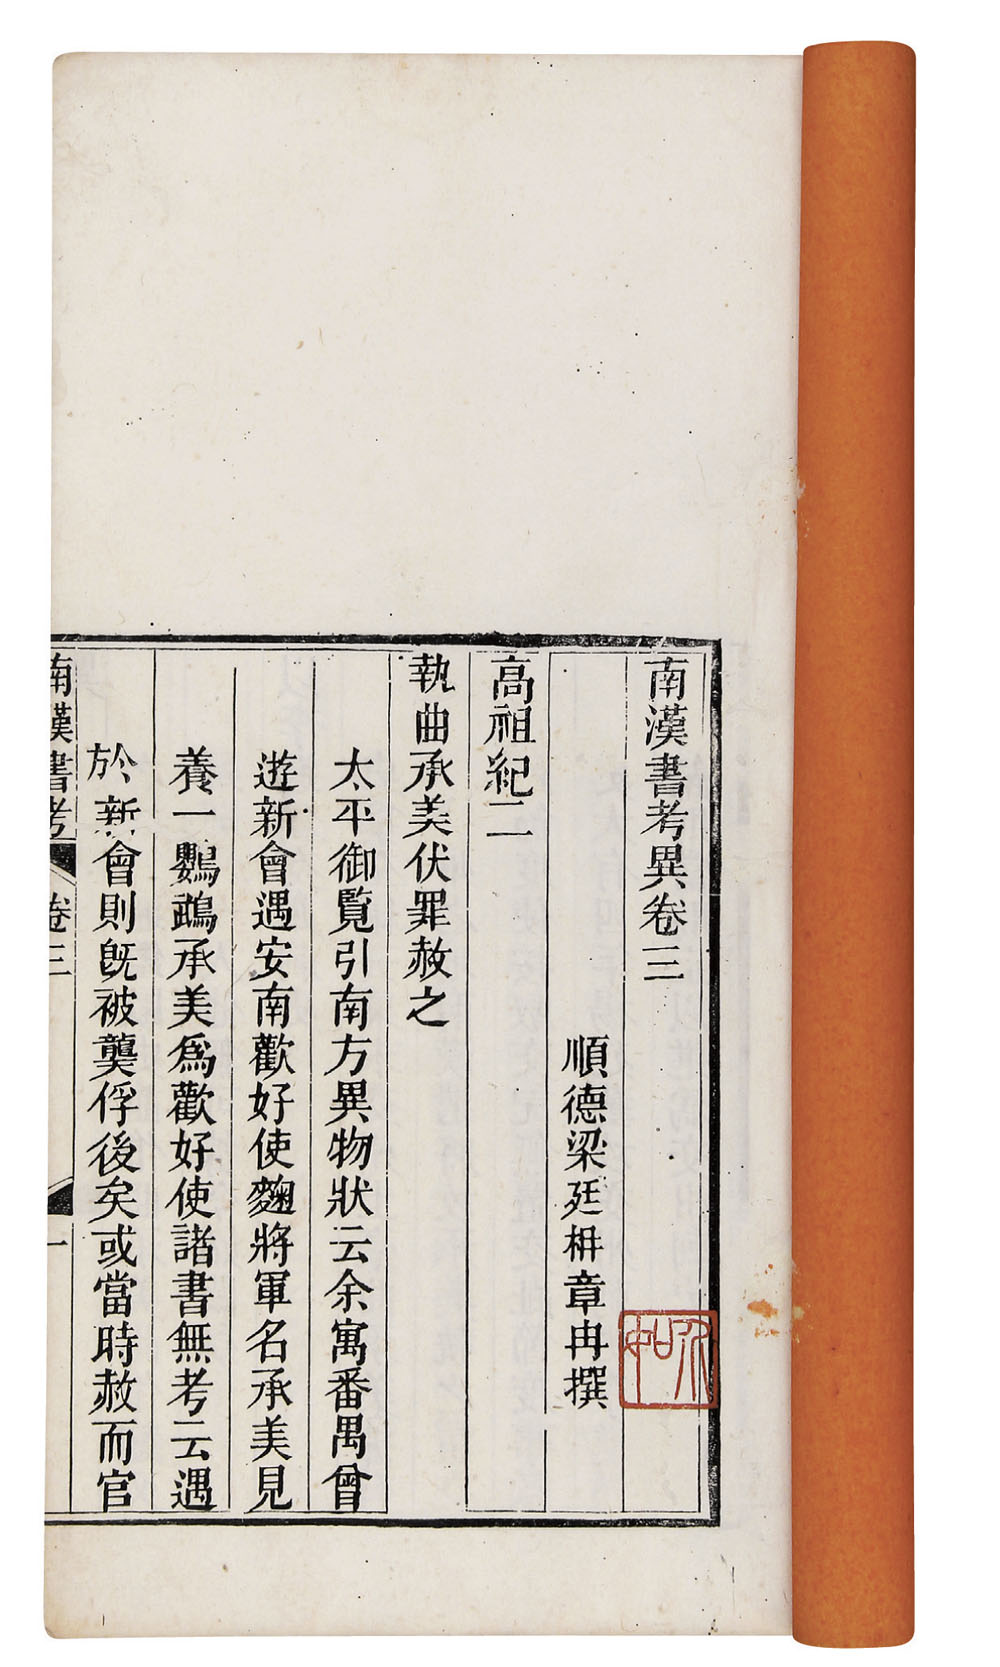 南漢書考異卷三
順德梁廷枏章冉撰
高祖紀二
執曲承美伏罪赦之
太平御覽引南方異物狀云余寓番禺曾
遊新會遇安南歡好使麴將軍名承美見
養一鸚鵡承美爲歡好使諸書無考云遇
於新會則旣被龑俘後矣或當時赦而官
南漢書考 卷三 一